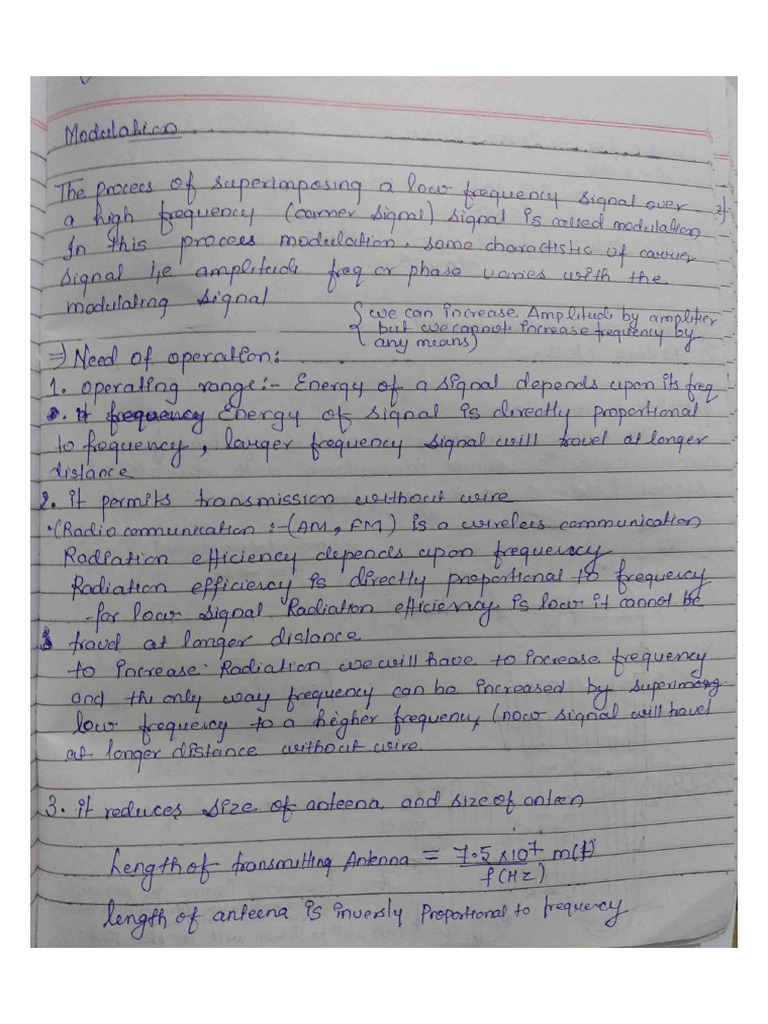 Modulation
The procecs of superimposing a low frequency signal over
a high frequency (carrier signal) signal is called modulation
In this process modulation. some charactistic of carrier
signal i,e amplitude freq or phase varies with the
modulating signal
{we can increase Amplitude by amplifier
but we cannot increase frequency by
any means)
⇒ Need of operation:
1. operating range:- Energy of a signal depends upon its freq
Energy of signal is directly proportional
to frequency, larger frequency signal will travel at longer
distance
2. it permits transmission without wire
(Radio communication :-(AM, FM) is a wireless communication
Radiation efficiency depends upon frequency
Radiation efficiency is directly proportional to frequency
-for low signal Radiation efficiency is low it cannot be
travel at longer distance
to increase Radiation we will have to increase frequency
and the only way frequency can be increased by
low frequency to a higher frequency, (now signal will travel
at longer distance without wire
3. it reduces size of anteena and size of anteen
Length of transmitting Antenna = 7.5 x10⁷ m
f(Hz)
length of anteena is inversly proportional to frequency